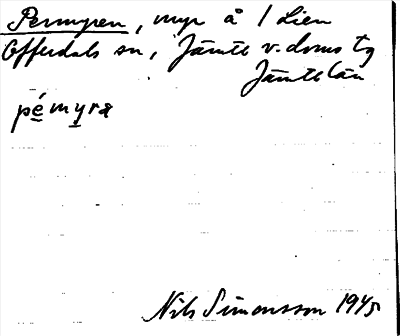 Permyren, myr å 1 Lien
Offerdals sn, Jämtl v. doms tg
Jämtl län
pémyrα
Nils Simonsson 1945